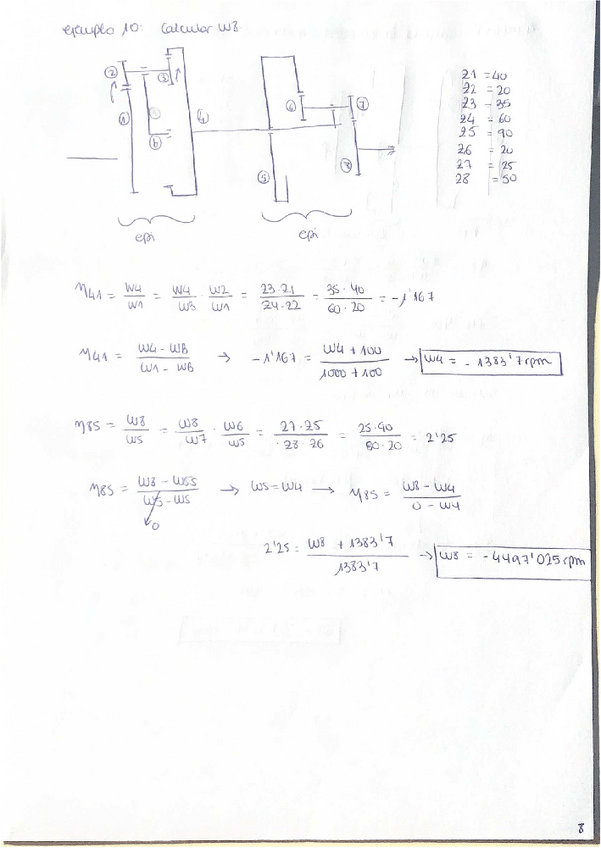 ejemplo 10: Calcular W8.
② ③ ① ⑥ ④ ⑥ ⑦ ⑤ ⑧
epi epi
Z1 = 40
Z2 = 20
Z3 = 35
Z4 = 60
Z5 = 90
Z6 = 20
Z7 = 25
Z8 = 50
η41 = W4/W1 = W4/W3 · W2/W1 = Z3·Z1/Z4·Z2 = 35·40/60·20 = -1'167
η41 = W4 - WB/W1 - WB → -1'167 = W4 + 100/1000 + 100 → W4 = -1383'7 rpm
η85 = W8/W5 = W8/W7 · W6/W5 = Z7·Z5/Z8·Z6 = 25·90/50·20 = 2'25
η85 = W8 - W5S/W5 - WS → WS = W4 → η85 = W8 - W4/0 - W4
0
2'25 = W8 + 1383'7/1383'7 → W8 = -4497'025 rpm
8